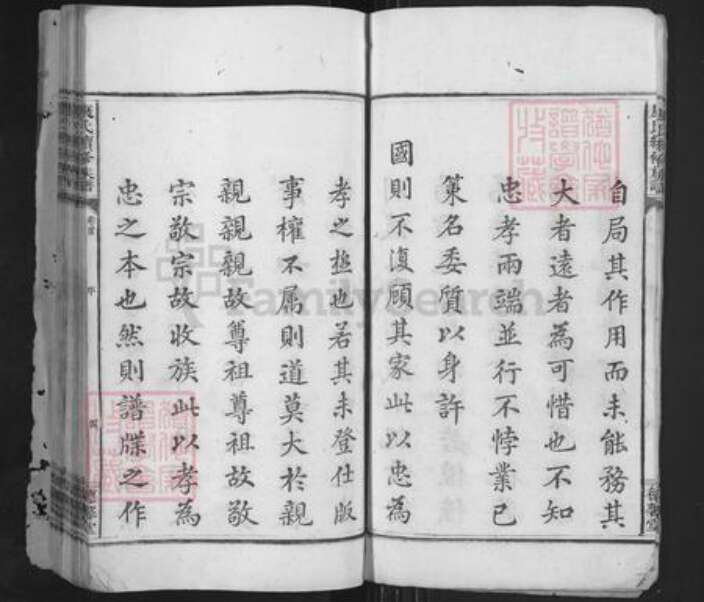 自局其作用而未能務其
大者遠者為可惜也不知
忠孝兩端並行不悖業已
策名委質以身許
國則不復顧其家此以忠為
孝之極也若其未登仕版
事權不属則道莫大於親
親親親故尊祖尊祖故敬
宗敬宗故收族此以孝為
忠之本也然則譜牒之作
FamilySearch